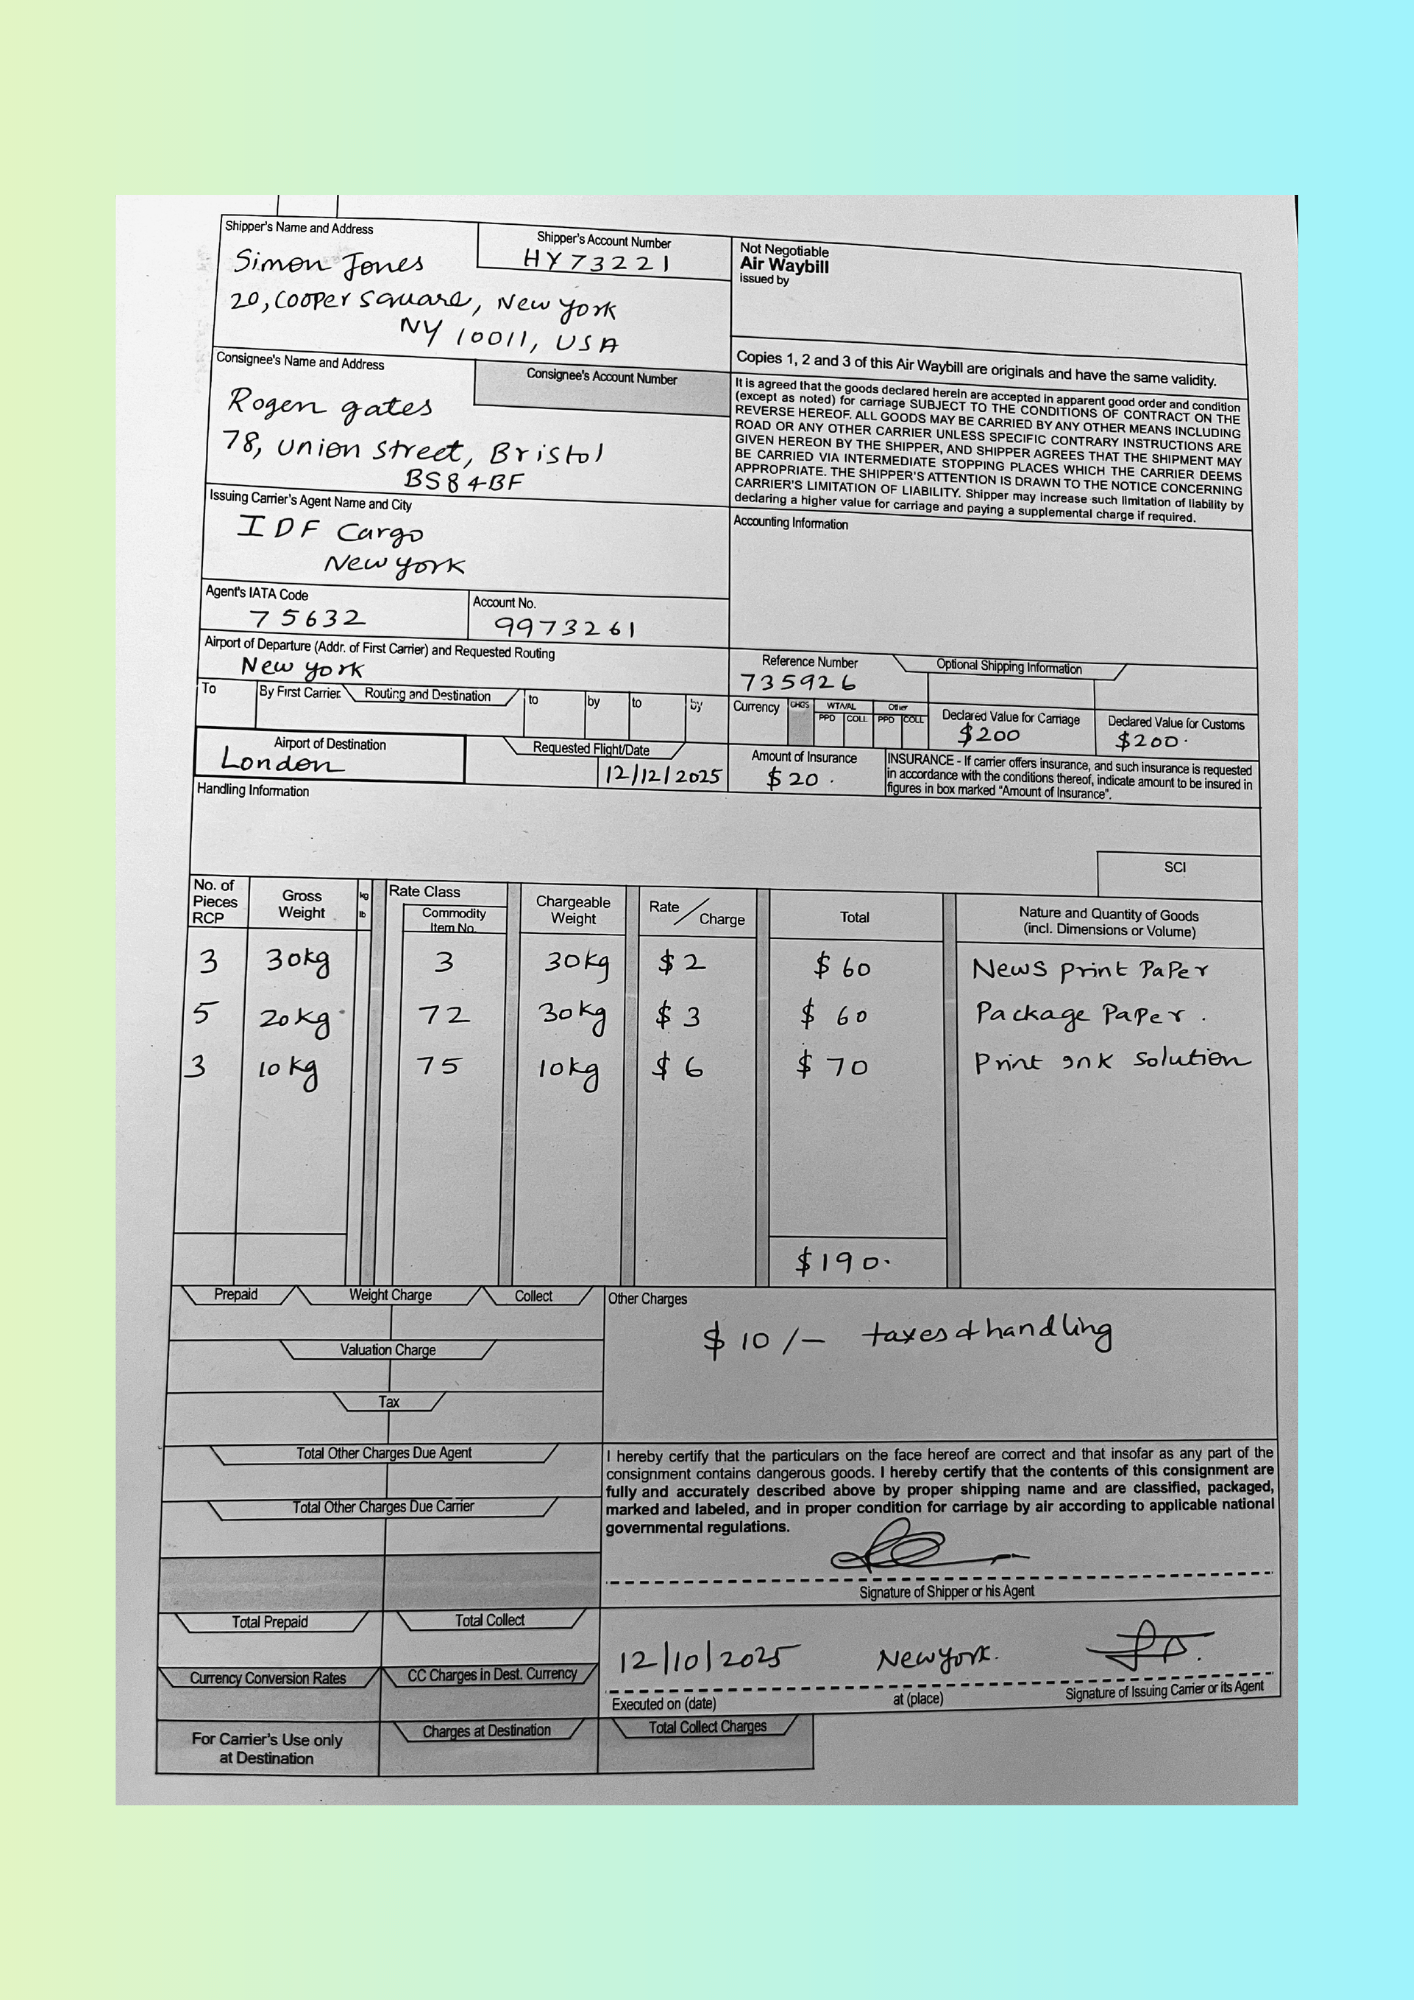 Shipper's Name and Address
Shipper's Account Number
HY73221
Simon Jones
20, Cooper Square, New York
NY 10011, USA
Not Negotiable
Air Waybill
issued by
Copies 1, 2 and 3 of this Air Waybill are originals and have the same validity.
Consignee's Name and Address
Consignee's Account Number
Rogen gates
78, Union Street, Bristol
BS8 4BF
It is agreed that the goods declared herein are accepted in apparent good order and condition
(except as noted) for carriage SUBJECT TO THE CONDITIONS OF CONTRACT ON THE
REVERSE HEREOF. ALL GOODS MAY BE CARRIED BY ANY OTHER MEANS INCLUDING
ROAD OR ANY OTHER CARRIER UNLESS SPECIFIC CONTRARY INSTRUCTIONS ARE
GIVEN HEREON BY THE SHIPPER, AND SHIPPER AGREES THAT THE SHIPMENT MAY
BE CARRIED VIA INTERMEDIATE STOPPING PLACES WHICH THE CARRIER DEEMS
APPROPRIATE. THE SHIPPER'S ATTENTION IS DRAWN TO THE NOTICE CONCERNING
CARRIER'S LIMITATION OF LIABILITY. Shipper may increase such limitation of liability by
declaring a higher value for carriage and paying a supplemental charge if required.
Issuing Carrier's Agent Name and City
IDF Cargo
New york
Accounting Information
Agent's IATA Code
75632
Account No.
9973261
Airport of Departure (Addr. of First Carrier) and Requested Routing
New york
Reference Number
735926
Optional Shipping Information
To
By First Carrier
Routing and Destination
to
by
to
by
Currency
CHGS
WT/VAL
PPD
COLL
Other
PPD
COLL
Declared Value for Carriage
$200
Declared Value for Customs
$200.
Airport of Destination
London
Requested Flight/Date
12/12/2025
Amount of Insurance
$20.
INSURANCE - If carrier offers insurance, and such insurance is requested
in accordance with the conditions thereof, indicate amount to be insured in
figures in box marked "Amount of Insurance".
Handling Information
SCI
No. of Pieces RCP
Gross Weight
kg
lb
Rate Class
Commodity Item No.
Chargeable Weight
Rate / Charge
Total
Nature and Quantity of Goods
(incl. Dimensions or Volume)
3 30kg 3 30kg $2 $60 News print Paper
5 20kg 72 30kg $3 $ 60 Package Paper.
3 10kg 75 10kg $6 $ 70 Print Ink solution
$190.
Prepaid
Weight Charge
Collect
Other Charges
$ 10/- taxes & handling
Valuation Charge
Tax
Total Other Charges Due Agent
Total Other Charges Due Carrier
I hereby certify that the particulars on the face hereof are correct and that insofar as any part of the
consignment contains dangerous goods. I hereby certify that the contents of this consignment are
fully and accurately described above by proper shipping name and are classified, packaged,
marked and labeled, and in proper condition for carriage by air according to applicable national
governmental regulations.
Signature of Shipper or his Agent
Total Prepaid
Total Collect
Currency Conversion Rates
CC Charges in Dest. Currency
12/10/2025
New york.
Executed on (date)
at (place)
Signature of Issuing Carrier or its Agent
For Carrier's Use only
at Destination
Charges at Destination
Total Collect Charges